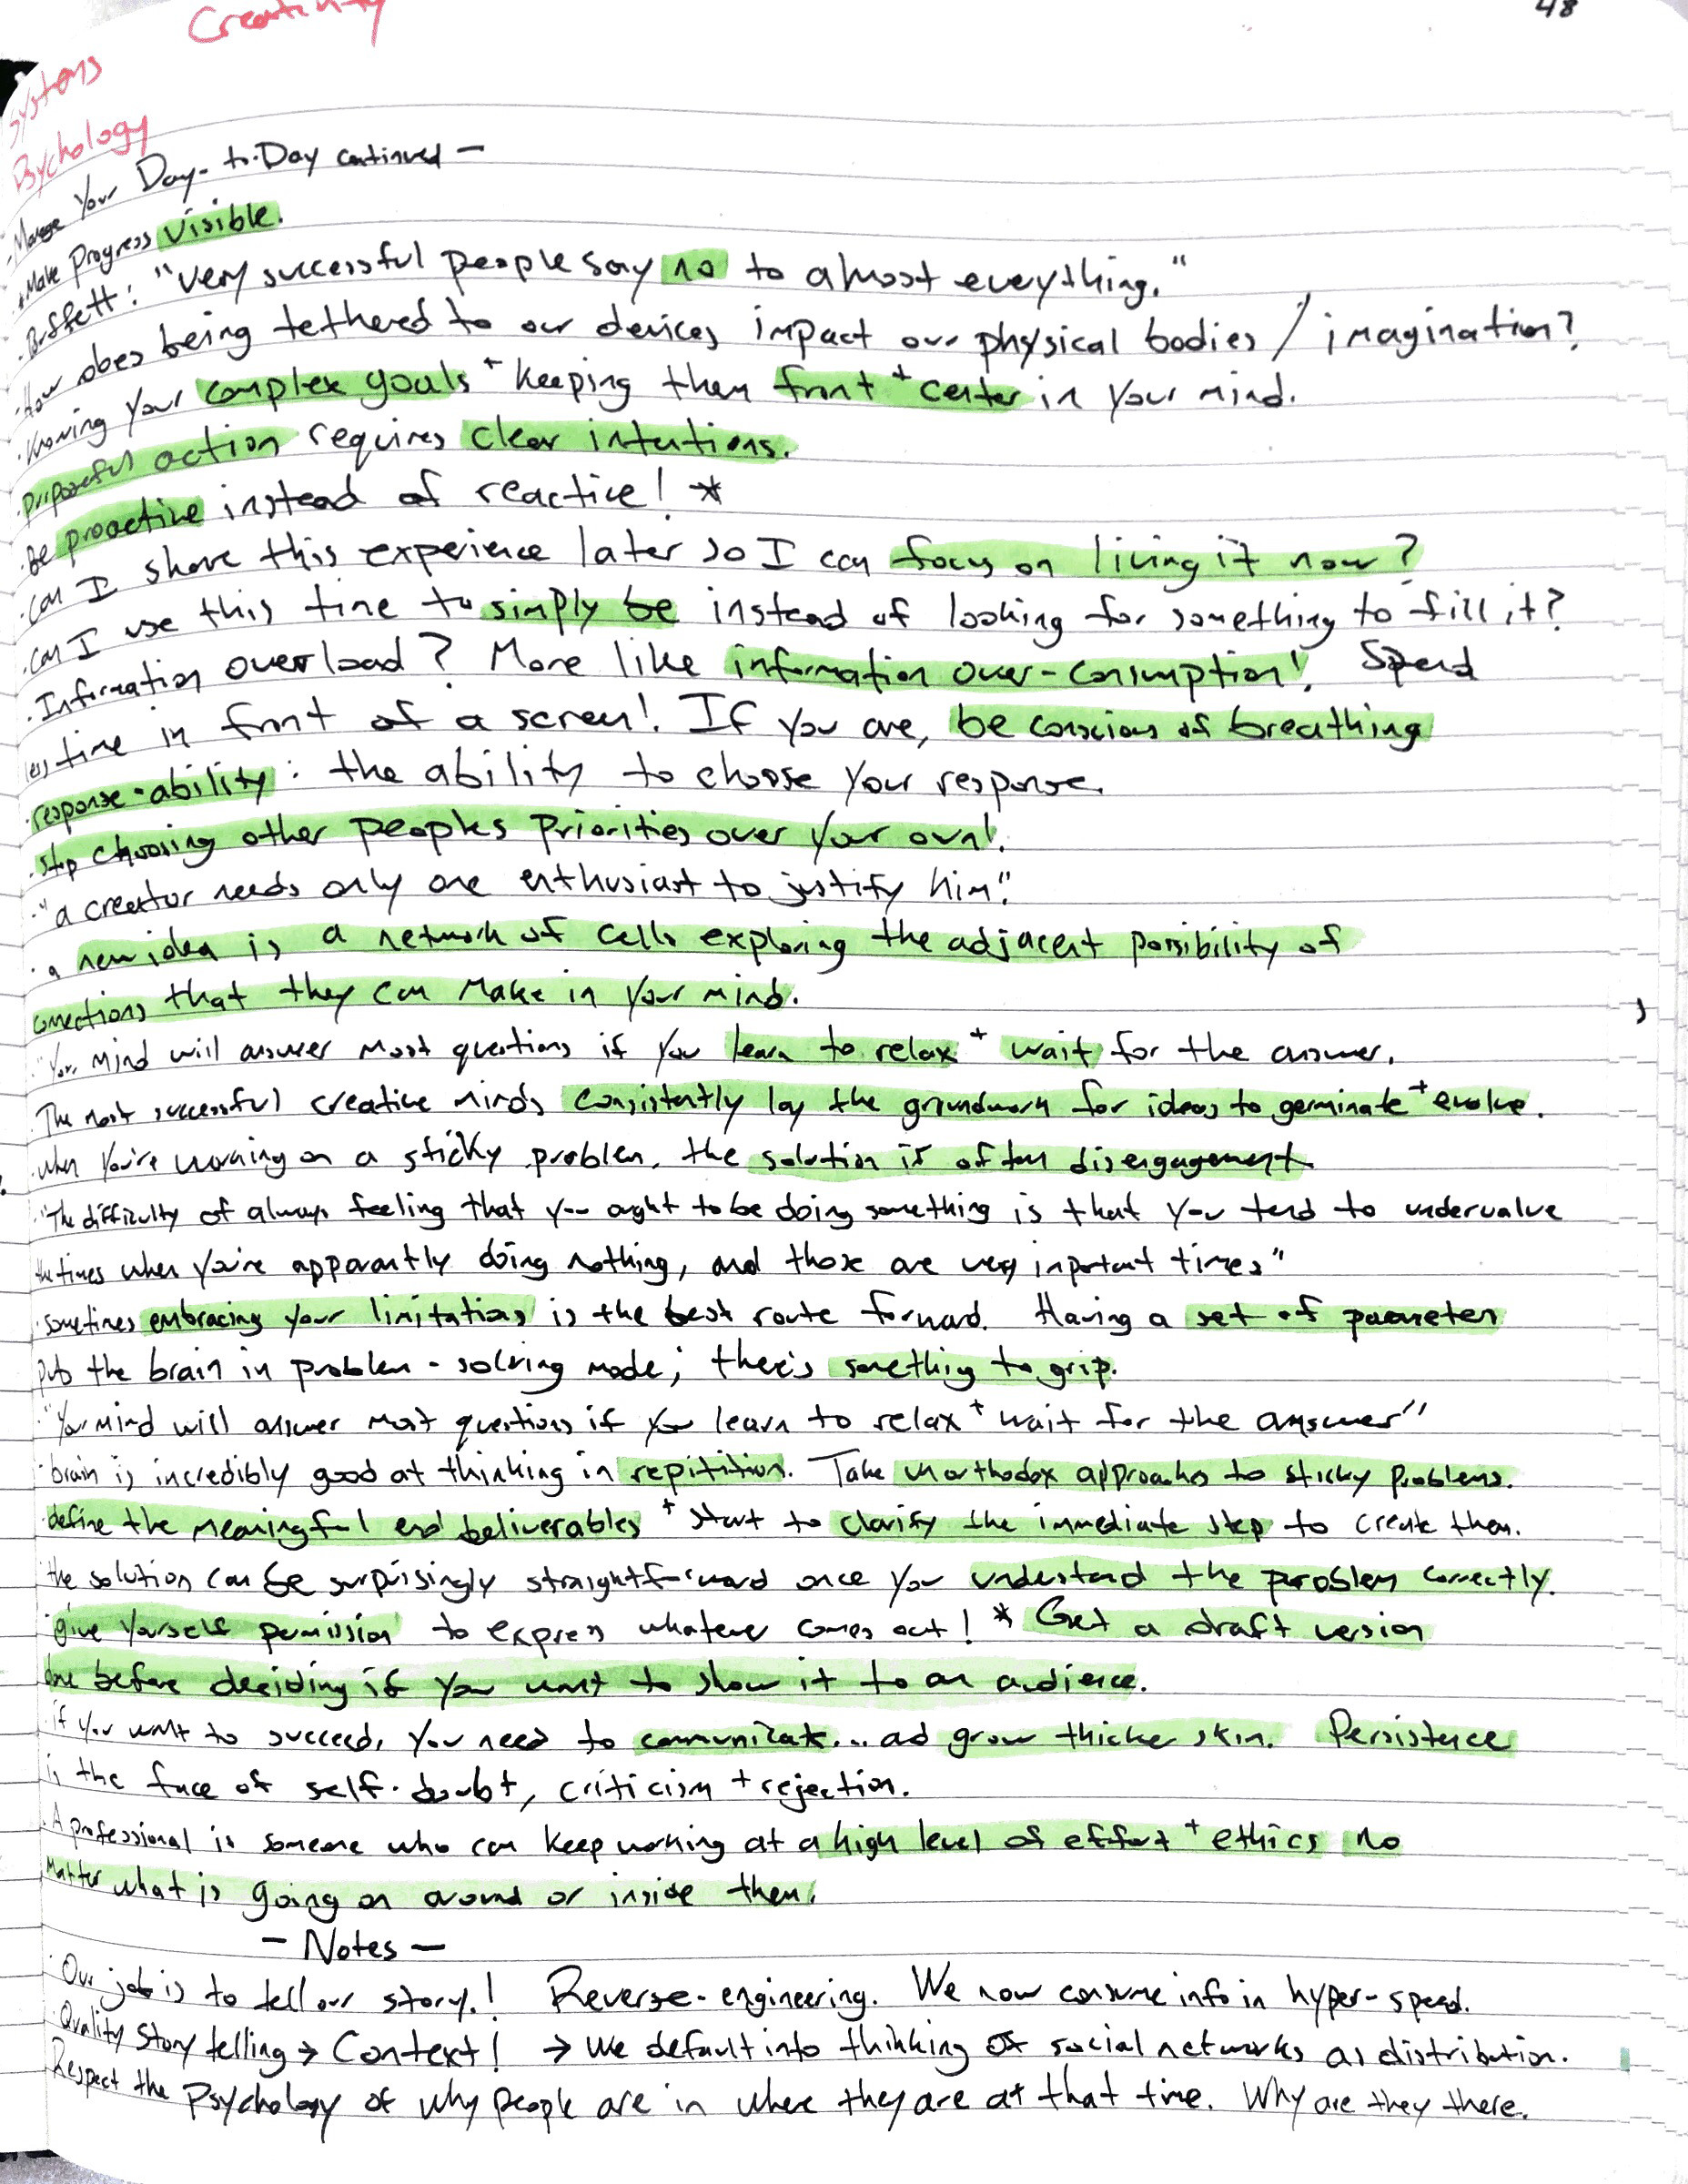 Creativity
48
Systems
Psychology
- Manage Your Day-to-Day continued -
• Make Progress Visible.
• Buffett: "Very successful people say no to almost everything."
• How does being tethered to our devices impact our physical bodies / imagination?
• Knowing your complex goals + keeping them front + center in your mind.
• purposeful action requires clear intentions.
• Be proactive instead of reactive! *
• Can I share this experience later so I can focus on living it now?
• Can I use this time to simply be instead of looking for something to fill it?
• Information overload? More like information over-consumption! Spend
less time in front of a screen! If you are, be conscious of breathing
• response-ability: the ability to choose your response.
• stop choosing other peoples priorities over your own!
• "a creator needs only one enthusiast to justify him".
• a new idea is a network of cells exploring the adjacent possibility of
connections that they can make in your mind.
• "Your mind will answer most questions if you learn to relax + wait for the answer.
• The most successful creative minds consistently lay the groundwork for ideas to germinate + evolve.
• when you're working on a sticky problem, the solution is often disengagement.
• "The difficulty of always feeling that you ought to be doing something is that you tend to undervalue
the times when you're apparently doing nothing, and those are very important times"
• sometimes embracing your limitations is the best route forward. Having a set of parameters
puts the brain in problem-solving mode; there's something to grip.
• "Your mind will answer most questions if you learn to relax + wait for the answer"
• brain is incredibly good at thinking in repitition. Take unorthodox approaches to sticky problems.
• define the meaningful end deliverables + start to clarify the immediate step to create them.
• the solution can be surprisingly straightforward once you understand the problem correctly.
• give yourself permission to express whatever comes out! * Get a draft version
done before deciding if you want to show it to an audience.
• if you want to succeed, you need to communicate... and grow thicker skin. Persistence
is the face of self-doubt, criticism + rejection.
• A professional is someone who can keep working at a high level of effort + ethics no
matter what is going on around or inside them.
- Notes -
• Our job is to tell our story.! Reverse-engineering. We now consume info in hyper-speed.
• Quality Story telling → Context! → We default into thinking of social networks as distribution.
• Respect the Psychology of why people are in where they are at that time. Why are they there.